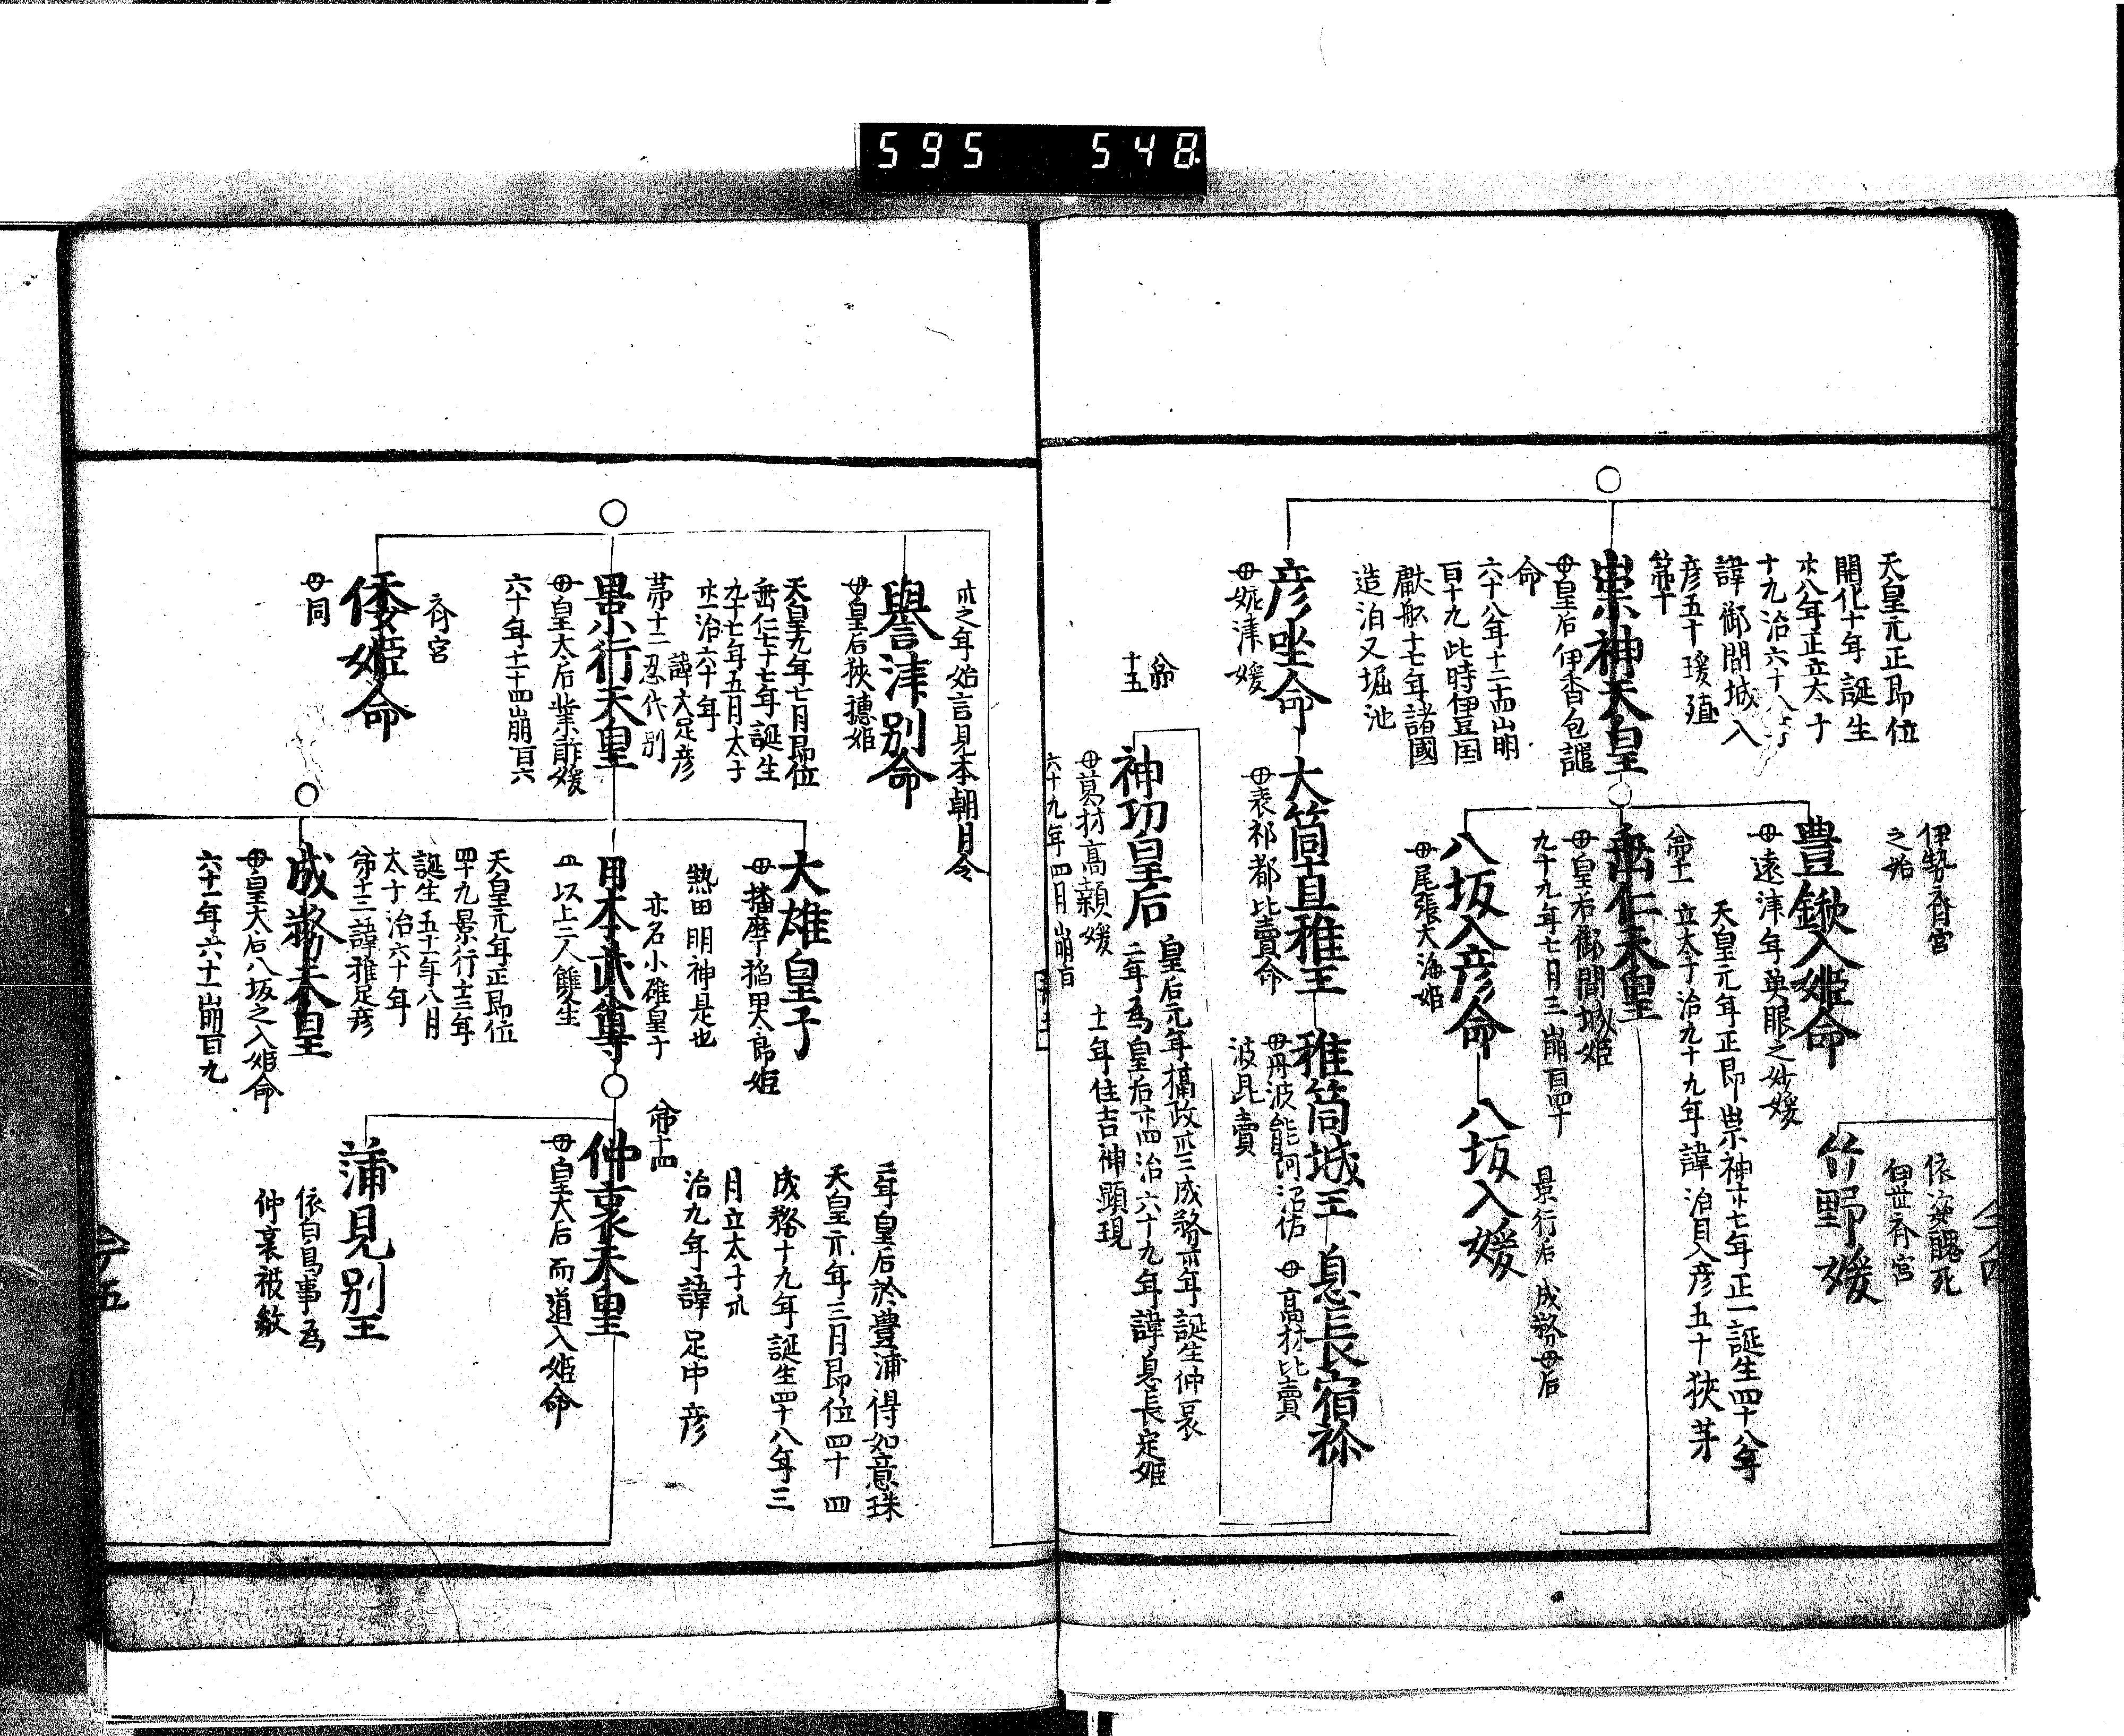 595 548
天皇元正即位
開化十年誕生
廿八年正立太子
諱御間城入
彦五十瓊殖
第十
崇神天皇
母皇后伊香色謎
命
六十八年十二五崩
百十九此時伊豆国
獻船十七年諸國
造泊又堀池
彦坐命
母姥津媛
伊勢斎宮
之始
豊鍬入姫命
母遠津年魚眼之妙媛
天皇元年正即崇神廿七年正一誕生四十八年
立太子治九十九年諱活目入彦五十狭茅
第十一
垂仁天皇
母皇后御間城姫
九十九年七月三崩百四十
八坂入彦命
母尾張大海姫
景行后成務母后
八坂入媛
依姿醜死
竹野媛
大筒真稚王
母表祁都比賣命
稚筒城王
母丹波能阿沼佑
波毘賣
息長宿祢
母高材比賣
第
十五
神功皇后
母葛城高顙媛
六十九年四月崩百
皇后元年摂政卅三成務卌年誕生仲哀
二年為皇后廿四治六十九年諱息長足姫
十一年住吉神顕現
卅之年始言見本朝月令
譽津別命
母皇后狭穂姫
天皇元年七月即位
垂仁七十七年誕生
九十七年五月太子
廿一治六十年
諱大足彦
忍代別
第十二
景行天皇
母皇太后葉酢媛
六十年十一十四崩百六
斎宮
倭姫命
母同
大雄皇子
母播磨稲田大郎姫
熱田明神是也
亦名小碓皇子
日本武尊
以上二人雙生
天皇元年正即位
四十九景行十三年
誕生五十一年八月
太子治六十年
第十三諱稚足彦
成務天皇
母皇大后八坂之入姫命
六十一年六十一崩百九
二年皇后於豊浦得如意珠
天皇元年三月即位四十四
成務十九年誕生四十八年三
月立太子卅
治九年諱足中彦
第十四
仲哀天皇
母皇大后両道入姫命
蒲見別王
依白鳥事為
仲哀被敘